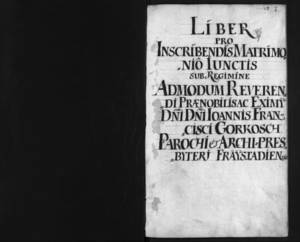 LIBER
PRO
INSCRIBENDIS MATRIMO,
NIÔ IUNCTIS
SUB REGIMINE
ADMODUM REVEREN,
DI PRÆNOBILIS AC EXIMŸ
DÑI DÑI IOANNIS FRAN,
CISCI GORKOSCH
PAROCHI & ARCHI-PRES,
BYTERI FRAŸSTADIEN